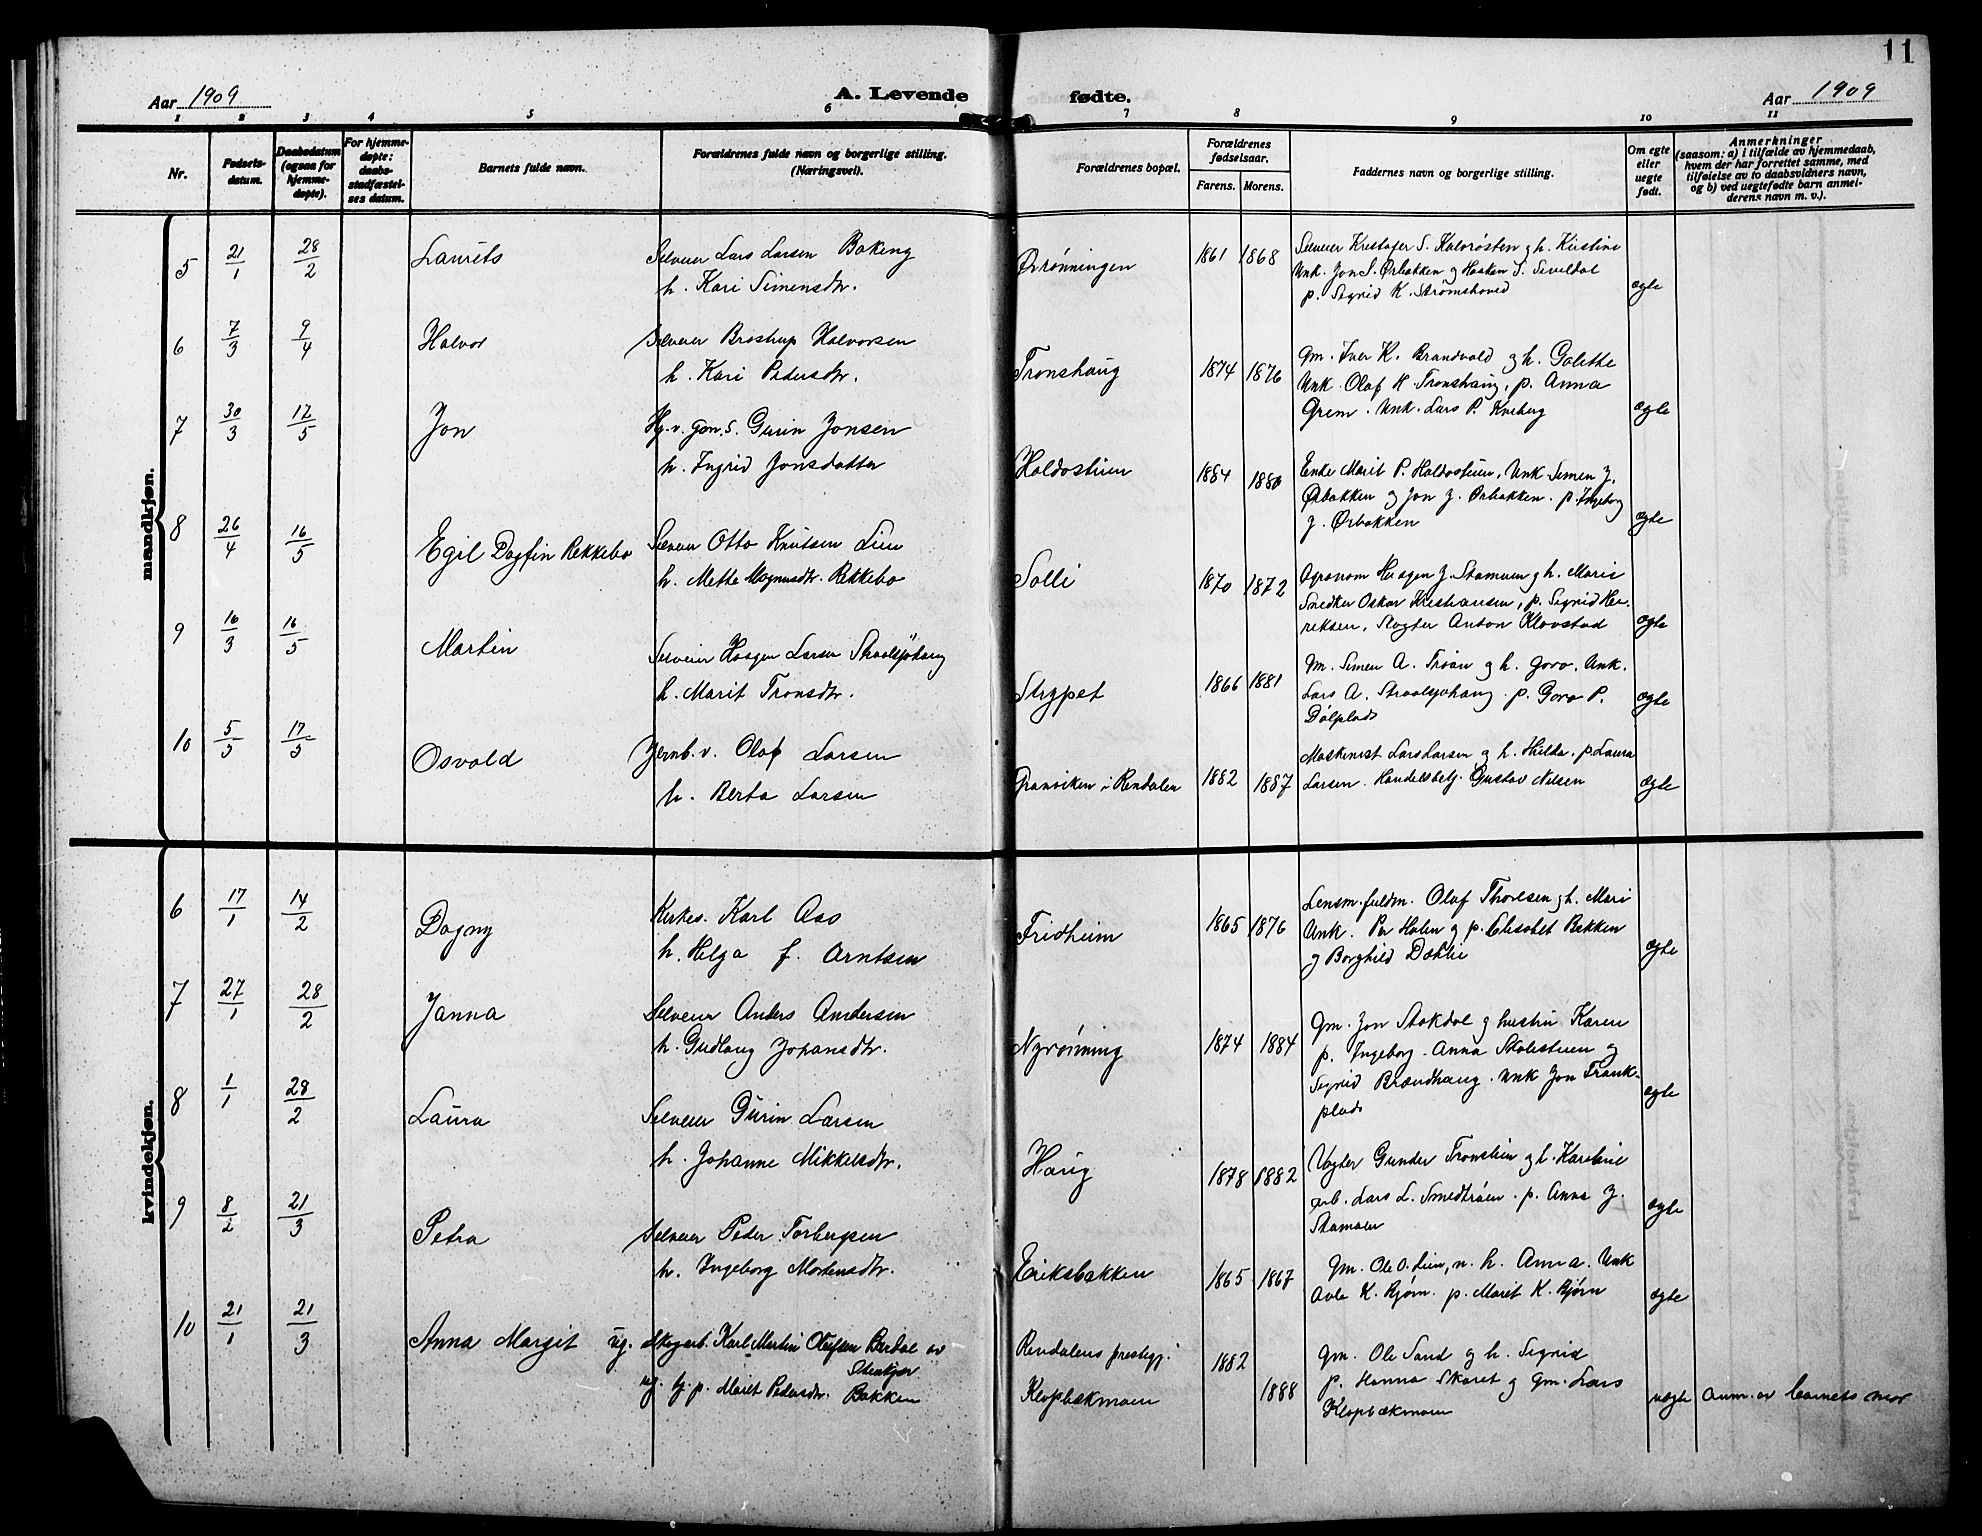 11
Aar 1909
A. Levende fødte.
Aar 1909
1 2 3 4 5 6 7 8 9 10 11
Nr.
Fødsels-
datum.
Daabsdatum
(ogsaa for
hjemme-
døpte).
For hjemme-
døpte:
daabs-
stadfæstel-
ses datum.
Barnets fulde navn.
Forældrenes fulde navn og borgerlige stilling.
(Næringsvei).
Forældrenes bopæl.
Forældrenes
fødselsaar.
Farens. Morens.
Faddernes navn og borgerlige stilling.
Om egte
eller
uegte
født.
Anmerkninger
(saasom: a) i tilfælde av hjemmedaab,
hvem der har forrettet samme, med
tilføielse av to daabsvidners navn,
og b) ved uegtefødte barn anmel-
derens navn m. v.).
mandkjøn.
5 21/1 28/2 Laurits
Selveier Lars Larsen Bakeng
h. Kari Simensdtr.
Ørrønningen 1861 1868
Selveier Kristofer S. Kalvrøsten og h. Kirstine
Unk. Jon S. Ørbakken og Haaken S. Siveldal
p. Sigrid K. Strømshoved
egte
6 7/3 9/4 Halvor
Selveier Brostrup Halvorsen
h. Kari Pedersdtr.
Tronshaug 1874 1876
Gm. Iver K. Brandvold og h. Golethe
Unk. Olaf H. Tronshaug, p. Anna
Grem. Unk. Lars P. Kveberg
egte
7 30/3 17/5 Jon
Hg.v. Gjøn.s. Gurin Jonsen
h. Ingrid Jonsdatter
Haldostuen 1884 1880
Enke Marit P. Haldostuen, Unk Simen J.
Ørbakken og Jon J. Ørbakken. p. Ingeborg
J. Ørbakken
egte
8 26/4 16/5 Egil Dagfin Rekkebo
Selveier Otto Knutsen Lien
h. Mette Magnusdtr. Rekkebo
Solli 1870 1872
Agronom Haagen J. Stamoen og h. Marie
Snedker Oskar Kristiansen, p. Sigrid Hen-
riksen, Slagter Anton Klovstad
egte
9 16/3 16/5 Martin
Selveier Haagen Larsen Straalsjøhaug
h. Marit Tronsdtr.
Strypet 1866 1881
Gm. Simen A. Trøen og h. Goro. Unk.
Lars A. Straalsjøhaug. p. Goro P.
Dølplads
egte
10 5/5 17/5 Osvald
Jernb.v. Olaf Larsen
h. Berta Larsen
Granviken i Rendalen 1882 1887
Maskinist Lars Larsen og h. Hilda. p Laura
Larsen. Handelsbetj. Gustav Nilsen
egte
kvindekjøn.
6 17/1 14/2 Dagny
Kirkes. Karl Aas
h. Helga f. Arntsen
Fridheim 1865 1876
Lensm.fuldm. Olaf Thoresen og h. Mari
Unk. Per Holen og p. Elisabet Bakken
og Borghild Dæhlie
egte
7 27/1 28/2 Janna
Selveier Anders Andersen
h. Gudlaug Johansdtr.
Nyrønning 1874 1884
Gm. Jon Stokdal og hustru Karen
p. Ingeborg Anna Skolestuen og
Sigrid Brændhaug. Unk Jon Frank-
plads
egte
8 1/1 28/2 Laura
Selveier Gurin Larsen
h. Johanne Mikkelsdtr.
Haug 1878 1882
Vogter Gunder Tronslien og h. Karoline
arb. Lars L. Smedtrøen. p. Anna J.
Stamoen
egte
9 8/2 21/3 Petra
Selveier Peder Torbergsen
h. Ingeborg Mortensdtr.
Eriksbakken 1865 1867
Gm. Ole O. Lien, n. h. Anna. Unk
Avle K. Bjørn. p. Marit K. Bjørn
egte
10 21/1 21/3 Anna Margit
ug. Skogarb. Karl Martin Olufsen Berdal av
Stenkjær
ug. tj. p. Marit Pedersdtr. Bakken
Rendalens prestegj. 1882
Klopbækmoen 1888
Gm. Ole Sand og h. Sigrid
p. Hanna Skaret og Gm. Lars
Klopbækmoen
uegte
Anm. av barnets mor